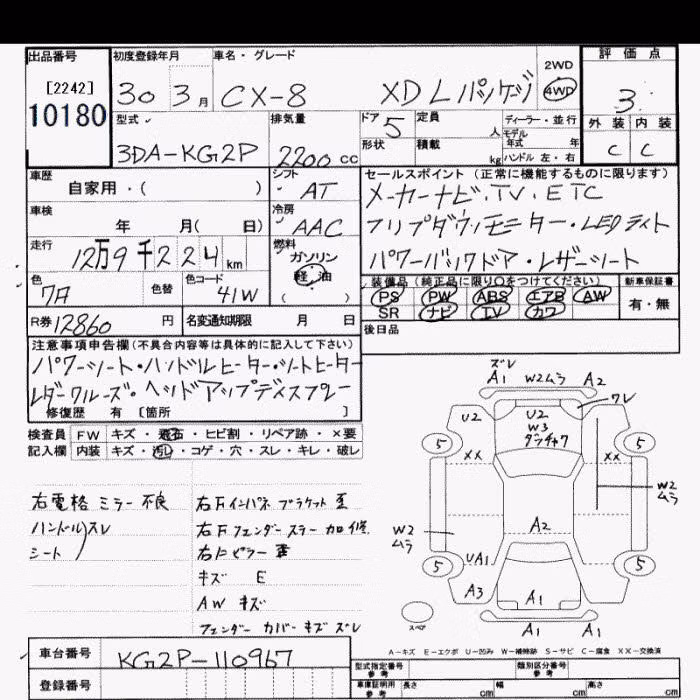 出品番号 初度登録年月 車名・グレード 評価点
[2242]
10180
30 3月 CX-8 XD Lパッケージ 2WD 4WD 3
型式 排気量 ドア 定員 ディーラー・並行
外装 内装
3DA-KG2P 2200cc 5 人 モデル年式 年
形状 積載 kg ハンドル 左・右 C C
車歴 シフト セールスポイント(正常に機能するものに限ります)
自家用・( ) AT メーカーナビ・TV・ETC
車検 冷房
年 月( 日) AAC フリップダウンモニター・LEDライト
走行 燃料
12万9千224km ガソリン パワーバックドア・レザーシート
軽・油
色 色替 色コード 装備品(純正品に限り○をつけてください) 新車保証書
クロ 41W ( ) PS PW ABS エアB AW 有・無
SR ナビ TV カワ
R券 12860円 名変通知期限 月 日 後日品
注意事項申告欄(不具合内容等は具体的に記入して下さい)
パワーシート・ハンドルヒーター・シートヒーター
レダークルーズ・ヘッドアップディスプレー
修復歴 有 [箇所 ]
検査員 FW キズ・飛石・ヒビ割・リペア跡・×要
記入欄 内装 キズ・汚れ・コゲ・穴・スレ・キレ・破レ
右電格ミラー不良
ハンドルスレ
シート
右Fインパネブラケット
右Fフェンダーステー 修
右Fピラー
キズ E
AW キズ
フェンダーカバーキズズレ
ズレ
A1 W2ムラ A2
ワレ
U2 U2
W3
5 5
XX XX
W2
ムラ
W2
ムラ
A2
5 UA1 5
A3 A1
スペア A1 A1
A-キズ E-エクボ U-凹み W-補修跡 S-サビ C-腐食 XX-交換済
車台番号 KG2P-110967
登録番号
型式指定番号 参考 類別区分番号 参考
車庫証明用 参考 長さ cm 幅 cm 高さ cm